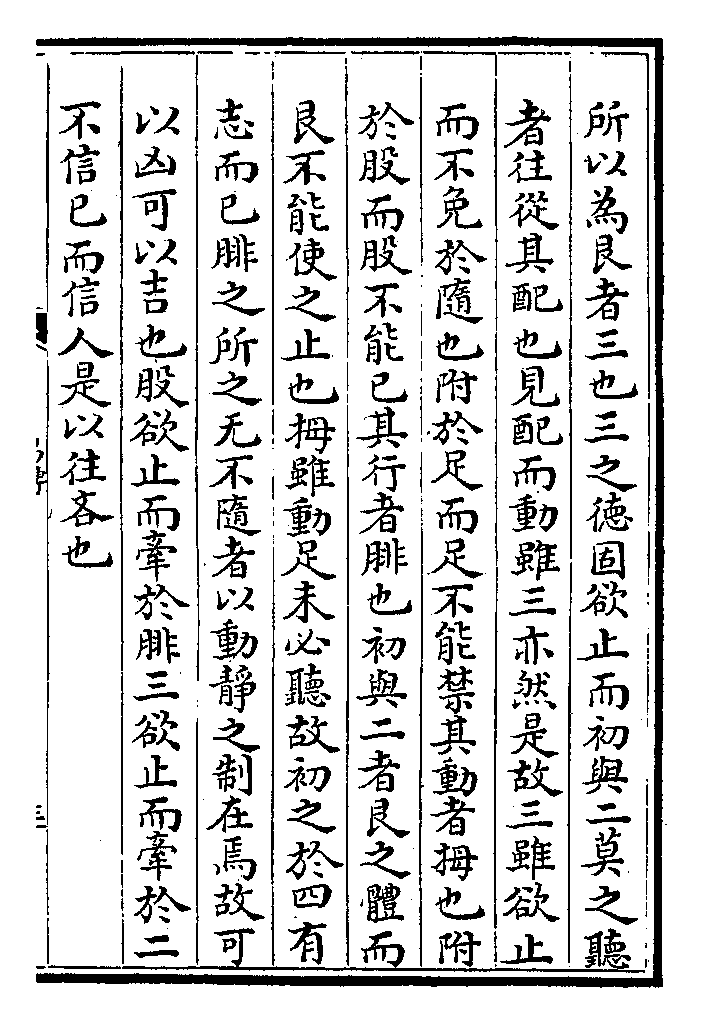 所以為艮者三也三之德固欲止而初與二莫之聽
者往從其配也見配而動雖三亦然是故三雖欲止
而不免於隨也附於足而足不能禁其動者拇也附
於股而股不能已其行者腓也初與二者艮之體而
艮不能使之止也拇雖動足未必聽故初之於四有
志而已腓之所之无不隨者以動靜之制在焉故可
以凶可以吉也股欲止而牽於腓三欲止而牽於二
不信已而信人是以往吝也